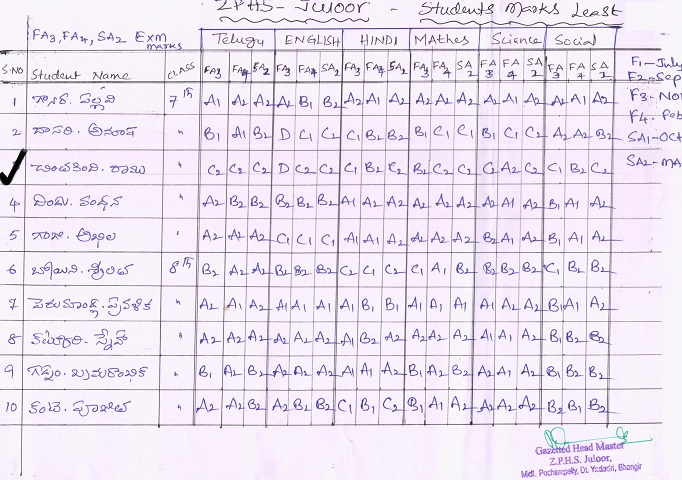 ZPHS - Juloor - Students Marks Least
FA3, FA4, SA2 Exm marks
Telugu ENGLISH HINDI MAthes Science Social
S.NO Student Name CLASS FA3 FA4 SA2 FA3 FA4 SA2 FA3 FA4 SA2 FA3 FA4 SA2 FA3 FA4 SA2 FA3 FA4 SA2
F1 - July
F2 - Sep
F3 - Nov
F4 - Feb
SA1 - Oct
SA2 - MA
1 7th A1 A2 A2 A2 B1 B2 A2 A1 A2 A2 A2 A2 A2 A1 A2 A2 A1 A2
2 దాసరి. అనూష " B1 A1 B2 D C1 C2 C1 B2 B2 B1 C1 C1 B1 C1 C2 A2 A2 B2
3 " C2 C2 C2 D C2 C2 C1 B2 C2 B2 C2 C2 C2 A2 C2 C1 B2 C2
4 " A2 B2 B2 B2 B2 B2 A1 A2 A2 A2 A2 A2 A2 A1 A2 B1 A1 A2
5 A2 A2 A2 C1 C1 C1 A1 A1 A2 A2 A2 A2 B2 A1 A2 B1 A1 A2
6 8th B2 A2 A2 B2 B2 B2 C2 C1 C2 C1 A1 B2 B2 B2 B2 C1 B2 B2
7 " A2 A1 A2 A1 A1 A1 A1 B1 B1 A1 A1 A1 A1 A2 A2 B1 A1 A2
8 " A2 A2 A2 A2 A2 A2 A1 B2 A2 A2 A2 A2 A1 A1 A2 B2 B2 B2
9 " B1 A2 B2 A2 A2 A2 A1 A1 A2 B1 A2 B2 A2 A2 A2 B1 B2 B2
10 " A2 A2 B2 A2 B2 B2 C1 B1 C2 B1 A1 A2 A2 A2 A2 B2 B1 B2
Gazetted Head Master
Z.P.H.S. Juloor,
Mdl. Pochampally, Dt. Yadadri, Bhongir